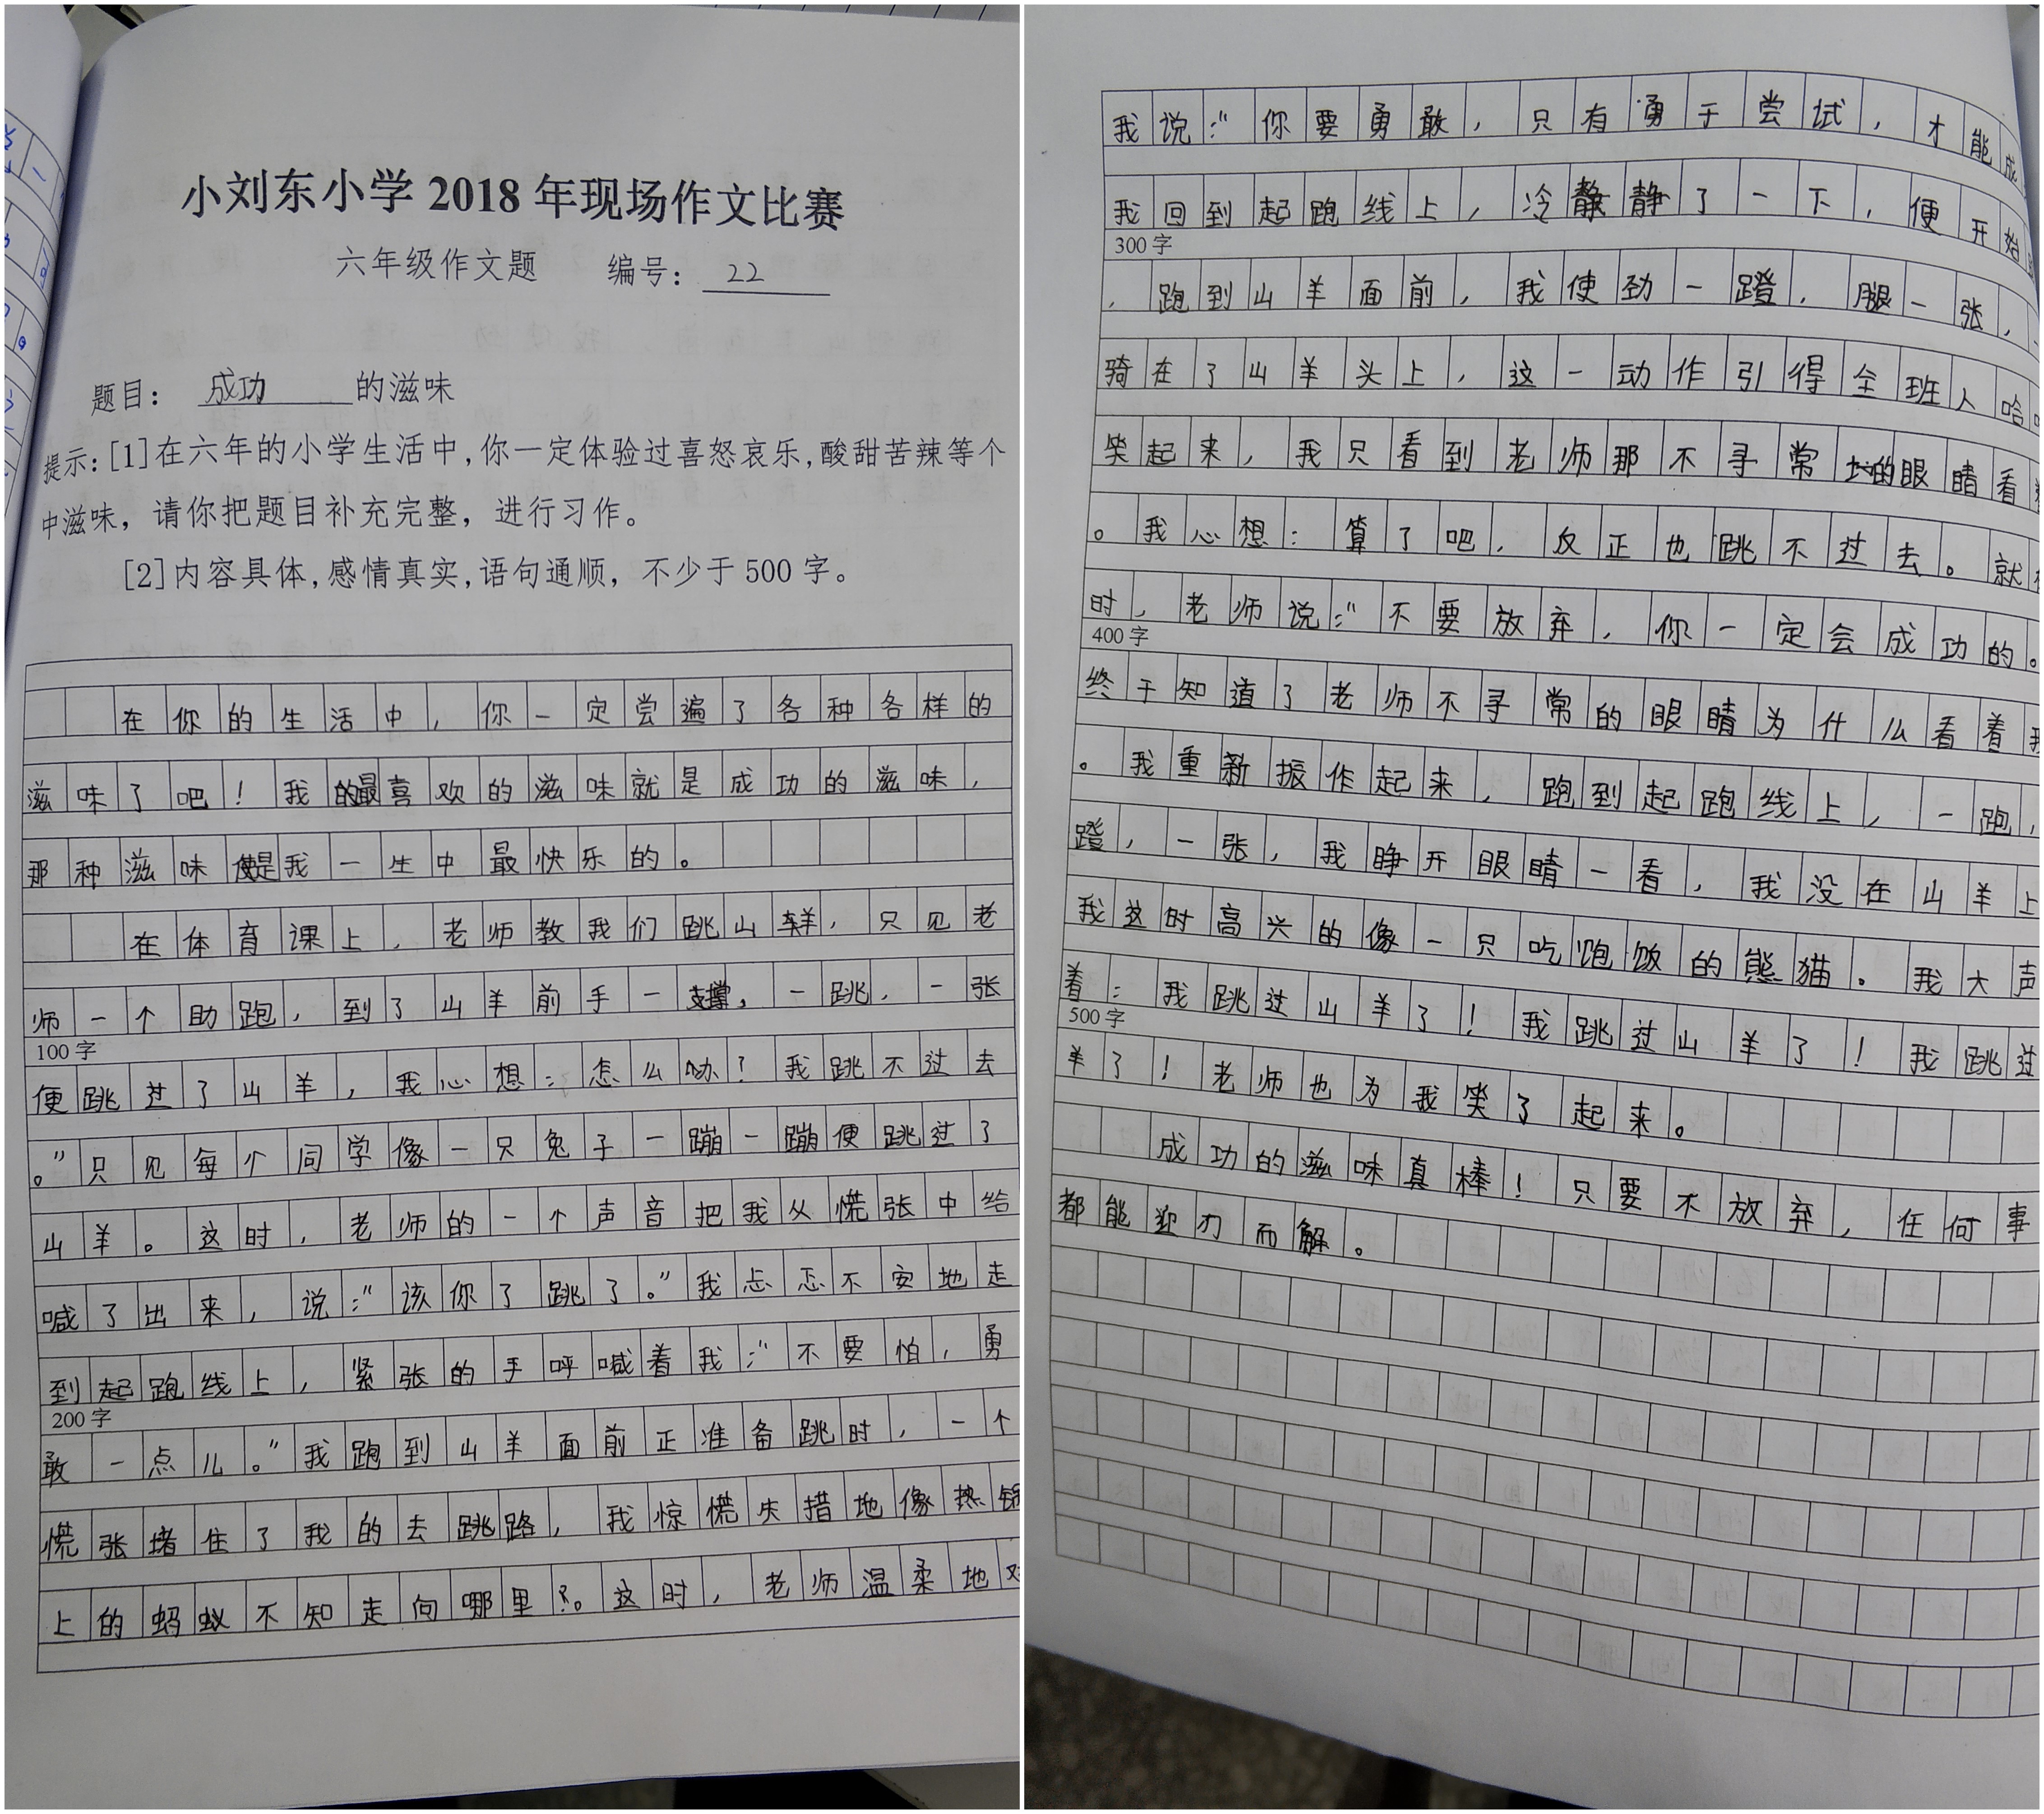 小刘东小学 2018 年现场作文比赛
六年级作文题 编号：22
题目：成功的滋味
提示：[1]在六年的小学生活中，你一定体验过喜怒哀乐，酸甜苦辣等个
中滋味，请你把题目补充完整，进行习作。
[2]内容具体，感情真实，语句通顺，不少于 500 字。
在你的生活中，你一定尝遍了各种各样的
滋味了吧！我最喜欢的滋味就是成功的滋味，
那种滋味是我一生中最快乐的。
在体育课上，老师教我们跳山羊，只见老
师一个助跑，到了山羊前手一撑，一跳，一张
100 字
便跳过了山羊，我心想：怎么办？我跳不过去
。”只见每个同学像一只兔子一蹦一蹦便跳过了
山羊。这时，老师的一个声音把我从慌张中给
喊了出来，说：“该你了跳了。”我忐忑不安地走
到起跑线上，紧张的手呼喊着我：“不要怕，勇
200 字
敢一点儿。”我跑到山羊面前正准备跳时，一个
慌张堵住了我的去跳路，我惊慌失措地像热锅
上的蚂蚁不知走向哪里。这时，老师温柔地对
我说：“你要勇敢，只有勇于尝试，才能成
我回到起跑线上，冷静静了一下，便开始
300 字
，跑到山羊面前，我使劲一蹬，腿一张，
骑在了山羊头上，这一动作引得全班人哈
笑起来，我只看到老师那不寻常的眼睛看
。我心想：算了吧，反正也跳不过去。就
时，老师说：“不要放弃，你一定会成功的。
400 字
终于知道了老师不寻常的眼睛为什么看着我
。我重新振作起来，跑到起跑线上，一跑，
蹬，一张，我睁开眼睛一看，我没在山羊上
我这时高兴的像一只吃饱饭的熊猫。我大声
着：我跳过山羊了！我跳过山羊了！我跳过
500 字
羊了！老师也为我笑了起来。
成功的滋味真棒！只要不放弃，任何事
都能迎刃而解。